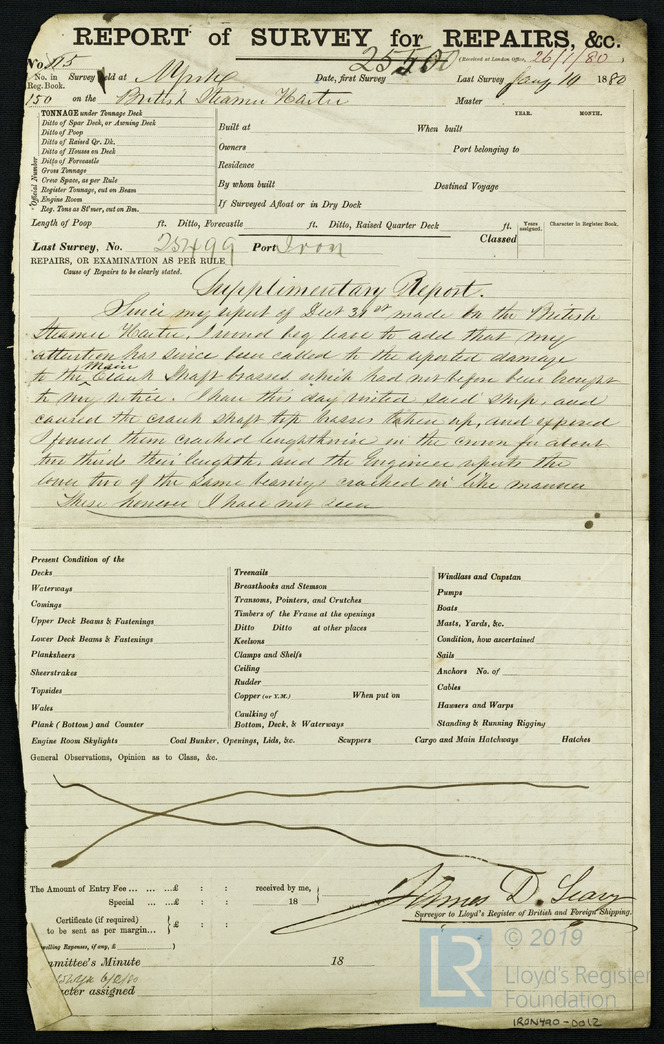 REPORT of SURVEY for REPAIRS, &c.
25500 (Received at London Office, 26/1/80)
No. 115
No. in Reg. Book. Survey held at Date, first Survey Last Survey Jany 10 1880
150 on the British Steamer Harter Master
TONNAGE under Tonnage Deck
Ditto of Spar Deck, or Awning Deck
Ditto of Poop
Ditto of Raised Qr. Dk.
Ditto of Houses on Deck
Ditto of Forecastle
Gross Tonnage
Crew Space, as per Rule
Register Tonnage, cut on Beam
Engine Room
Reg. Tons as St'mer, cut on Bm.
Official Number
YEAR. MONTH.
Built at When built
Owners Port belonging to
Residence
By whom built Destined Voyage
If Surveyed Afloat or in Dry Dock
Length of Poop ft. Ditto, Forecastle ft. Ditto, Raised Quarter Deck ft.
Years assigned. Character in Register Book.
Last Survey, No. 25499 Port Iron Classed
REPAIRS, OR EXAMINATION AS PER RULE
Cause of Repairs to be clearly stated.
Supplimentary Report.
Since my report of Dect 31st made on the British
Steamer Harter, I would beg leave to add that my
attention has since been called to the reported damage
to the Main Crank Shaft brasses which had not before been brought
to my notice. I have this day visited said ship, and
caused the crank shaft top brasses taken up, and exposed
I found them cracked lengthwise in the crown for about
two thirds their length, and the Engineer reports the
lower two of the same bearings cracked in like manner
These however I have not seen
Present Condition of the
Decks
Waterways
Comings
Upper Deck Beams & Fastenings
Lower Deck Beams & Fastenings
Planksheers
Sheerstrakes
Topsides
Wales
Plank (Bottom) and Counter
Treenails
Breasthooks and Stemson
Transoms, Pointers, and Crutches
Timbers of the Frame at the openings
Ditto Ditto at other places
Keelsons
Clamps and Shelfs
Ceiling
Rudder
Copper (or Y.M.) When put on
Caulking of
Bottom, Deck, & Waterways
Windlass and Capstan
Pumps
Boats
Masts, Yards, &c.
Condition, how ascertained
Sails
Anchors No. of
Cables
Hawsers and Warps
Standing & Running Rigging
Engine Room Skylights Coal Bunker, Openings, Lids, &c. Scuppers Cargo and Main Hatchways Hatches
General Observations, Opinion as to Class, &c.
The Amount of Entry Fee ... ... ...£ : : received by me,
Special ... ...£ : : 18
Certificate (if required) to be sent as per margin... £ : :
welling Expenses, if any, £
James D. Leary
Surveyor to Lloyd's Register of British and Foreign Shipping.
mmittee's Minute 18
acter assigned
LR © 2019
Lloyd's Register
Foundation
IRON490-0012